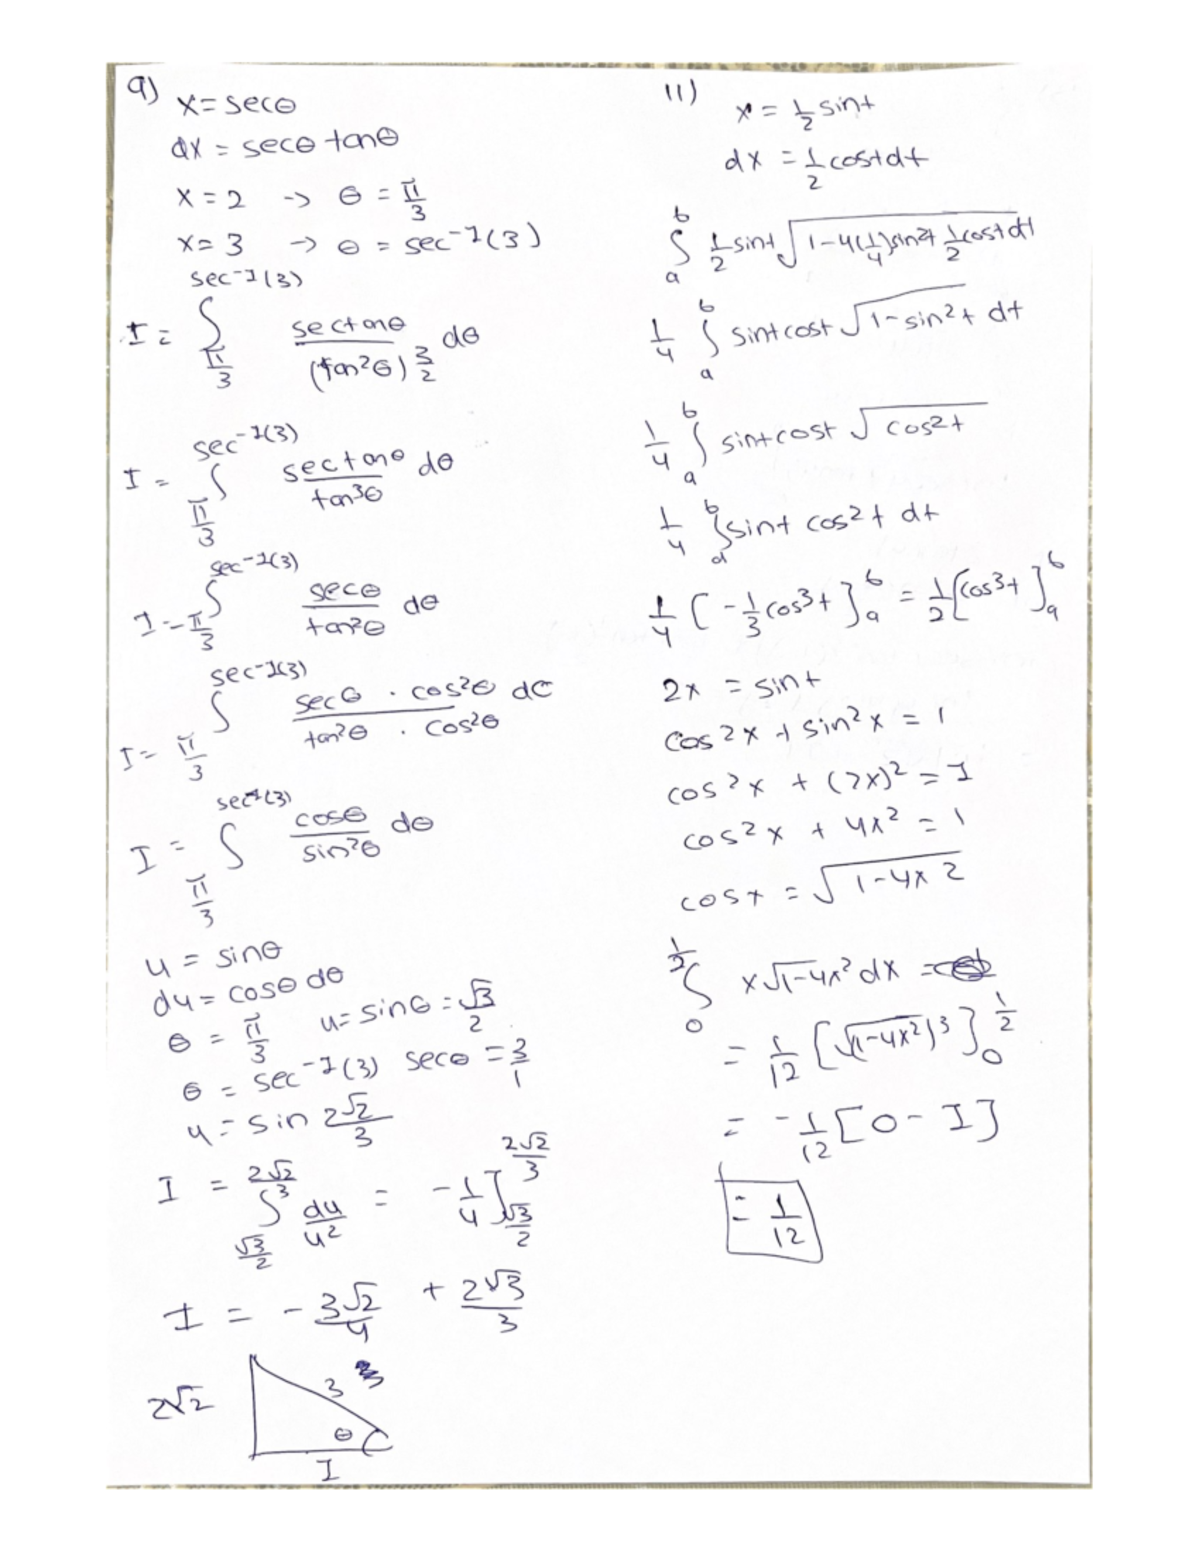 9)
x = secθ
dx = secθ tanθ
x = 2 -> θ = π/3
x = 3 -> θ = sec^-1(3)
I = ∫_{π/3}^{sec^-1(3)} sectanθ/(tan²θ)^{3/2} dθ
I = ∫_{π/3}^{sec^-1(3)} sectanθ/tan³θ dθ
I = ∫_{π/3}^{sec^-1(3)} secθ/tan²θ dθ
I = ∫_{π/3}^{sec^-1(3)} secθ · cos²θ/tan²θ · cos²θ dθ
I = ∫_{π/3}^{sec^-1(3)} cosθ/sin²θ dθ
u = sinθ
du = cosθ dθ
θ = π/3 u = sinθ = √3/2
θ = sec^-1(3) secθ = 3/1
u = sin 2√2/3
I = ∫_{√3/2}^{2√2/3} du/u² = -1/u]_{√3/2}^{2√2/3}
I = -3√2/4 + 2√3/3
2√2 3 3
θ
1
11)
x = 1/2 sint
dx = 1/2 cost dt
∫_a^b 1/2 sint √(1-4(1/4)sin²t 1/2 cost dt
1/4 ∫_a^b sint cost √(1-sin²t) dt
1/4 ∫_a^b sint cost √(cos²t)
1/4 ∫_a^b sint cos²t dt
1/4 [-1/3 cos³t]_a^b = 1/2 [cos³t]_a^b
2x = sint
cos²x + sin²x = 1
cos²x + (2x)² = 1
cos²x + 4x² = 1
cost = √(1-4x²)
∫_0^{1/2} x√(1-4x²) dx =
= 1/12 [√(1-4x²)³]_0^{1/2}
= -1/12 [0 - 1]
= 1/12